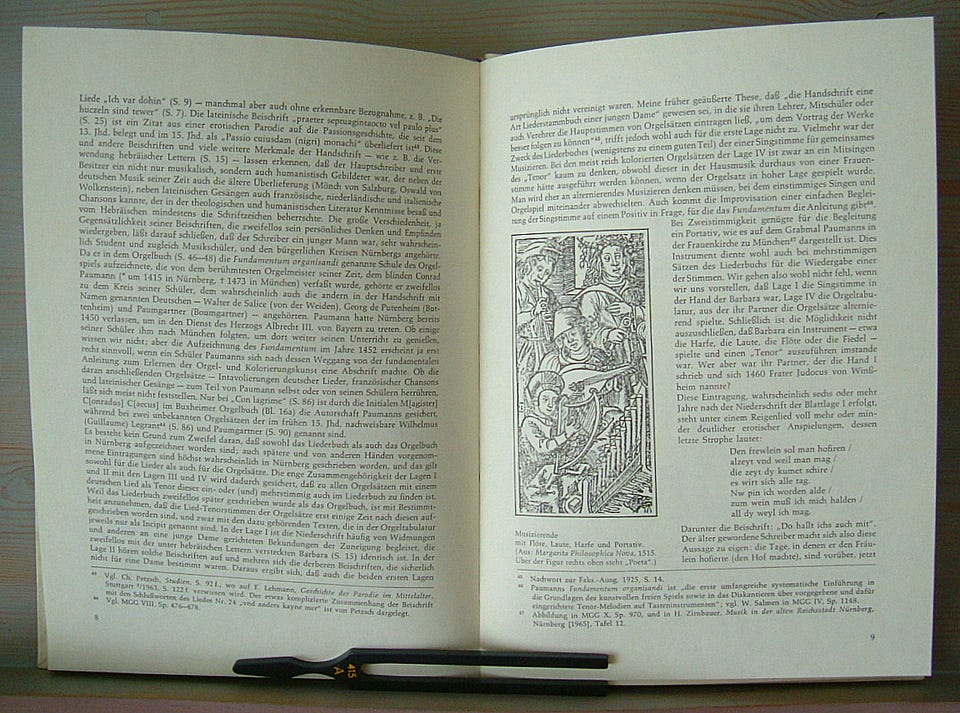 Liede „Ich var dohin“ (S. 9) — manchmal aber auch ohne erkennbare Bezugnahme, z. B. „Die
huczeln sind tewer“ (S. 7). Die lateinische Beischrift „praeter septuagintaocto vel paulo plus“
(S. 25) ist ein Zitat aus einer erotischen Parodie auf die Passionsgeschichte, die seit dem
13. Jhd. belegt und im 15. Jhd. als „Passio cuiusdam (nigri) monachi“ überliefert ist⁴³. Diese
und andere Beischriften und viele weitere Merkmale der Handschrift — wie z. B. die Ver-
wendung hebräischer Lettern (S. 15) — lassen erkennen, daß der Hauptschreiber und erste
Besitzer ein nicht nur musikalisch, sondern auch humanistisch Gebildeter war, der neben der
deutschen Musik seiner Zeit auch die ältere Überlieferung (Mönch von Salzburg, Oswald von
Wolkenstein), neben lateinischen Gesängen auch französische, niederländische und italienische
Chansons kannte, der in der theologischen und humanistischen Literatur Kenntnisse besaß und
vom Hebräischen mindestens die Schriftzeichen beherrschte. Die große Verschiedenheit, ja
Gegensätzlichkeit seiner Beischriften, die zweifellos sein persönliches Denken und Empfinden
wiedergeben, läßt darauf schließen, daß der Schreiber ein junger Mann war, sehr wahrschein-
lich Student und zugleich Musikschüler, und den bürgerlichen Kreisen Nürnbergs angehörte.
Da er in dem Orgelbuch (S. 46—48) die Fundamentum organisandi genannte Schule des Orgel-
spiels aufzeichnete, die von dem berühmtesten Orgelmeister seiner Zeit, dem blinden Conrad
Paumann (* um 1415 in Nürnberg, † 1473 in München) verfaßt wurde, gehörte er zweifellos
zu dem Kreis seiner Schüler, dem wahrscheinlich auch die andern in der Handschrift mit
Namen genannten Deutschen — Walter de Salice (von der Weiden), Georg de Putenheim (But-
tenheim) und Paumgartner (Boumgartner) — angehörten. Paumann hatte Nürnberg bereits
1450 verlassen, um in den Dienst des Herzogs Albrecht III. von Bayern zu treten. Ob einige
seiner Schüler ihm nach München folgten, um dort weiter seinen Unterricht zu genießen,
wissen wir nicht; aber die Aufzeichnung des Fundamentum im Jahre 1452 erscheint ja erst
recht sinnvoll, wenn ein Schüler Paumanns sich nach dessen Weggang von der fundamentalen
Anleitung zum Erlernen der Orgel- und Kolorierungskunst eine Abschrift machte. Ob die
daran anschließenden Orgelsätze — Intavolierungen deutscher Lieder, französischer Chansons
und lateinischer Gesänge — zum Teil von Paumann selbst oder von seinen Schülern herrühren,
läßt sich meist nicht feststellen. Nur bei „Con lagrime“ (S. 86) ist durch die Initialen M[agister]
C[onradus] C[aecus] im Buxheimer Orgelbuch (Bl. 16a) die Autorschaft Paumanns gesichert,
während bei zwei unbekannten Orgelsätzen der im frühen 15. Jhd. nachweisbare Wilhelmus
(Guillaume) Legrant⁴⁴ (S. 86) und Paumgartner (S. 90) genannt sind.
Es besteht kein Grund zum Zweifel daran, daß sowohl das Liederbuch als auch das Orgelbuch
in Nürnberg aufgezeichnet worden sind; auch spätere und von anderen Händen vorgenom-
mene Eintragungen sind höchst wahrscheinlich in Nürnberg geschrieben worden, und das gilt
sowohl für die Lieder als auch für die Orgelsätze. Die enge Zusammengehörigkeit der Lagen I
und II mit den Lagen III und IV wird dadurch gesichert, daß zu allen Orgelsätzen mit einem
deutschen Lied als Tenor dieser ein- oder (und) mehrstimmig auch im Liederbuch zu finden ist.
Weil das Liederbuch zweifellos später geschrieben wurde als das Orgelbuch, ist mit Bestimmt-
heit anzunehmen, daß die Lied-Tenorstimmen der Orgelsätze erst einige Zeit nach diesen auf-
geschrieben worden sind, und zwar mit den dazu gehörenden Texten, die in der Orgeltabulatur
jeweils nur als Incipit genannt sind. In der Lage I ist die Niederschrift häufig von Widmungen
und anderen an eine junge Dame gerichteten Bekundungen der Zuneigung begleitet, die
zweifellos mit der unter hebräischen Lettern versteckten Barbara (S. 15) identisch ist. In der
Lage II hören solche Beischriften auf und mehren sich die derberen Beischriften, die sicherlich
nicht für eine Dame bestimmt waren. Daraus ergibt sich, daß auch die beiden ersten Lagen
⁴³ Vgl. Ch. Petzsch, Studien, S. 92 f., wo auf F. Lehmann, Geschichte der Parodie im Mittelalter,
Stuttgart ²/1963, S. 122 f. verwiesen wird. Der etwas komplizierte Zusammenhang der Beischrift
mit den Schlußworten des Liedes Nr. 24 „vnd anders kayne mer“ ist von Petzsch dargelegt.
⁴⁴ Vgl. MGG VIII, Sp. 476—478.
8
ursprünglich nicht vereinigt waren. Meine früher geäußerte These, daß „die Handschrift eine
Art Liederstammbuch einer jungen Dame“ gewesen sei, in die sie ihren Lehrer, Mitschüler oder
auch Verehrer die Hauptstimmen von Orgelsätzen eintragen ließ, „um dem Vortrag der Werke
besser folgen zu können“⁴⁵, trifft jedoch wohl auch für die erste Lage nicht zu. Vielmehr war der
Zweck des Liederbuches (wenigstens zu einem guten Teil) der einer Singstimme für gemeinsames
Musizieren. Bei den meist reich kolorierten Orgelsätzen der Lage IV ist zwar an ein Mitsingen
des „Tenor“ kaum zu denken, obwohl dieser in der Hausmusik durchaus von einer Frauen-
stimme hätte ausgeführt werden können, wenn der Orgelsatz in hoher Lage gespielt wurde.
Man wird eher an alternierendes Musizieren denken müssen, bei dem einstimmiges Singen und
Orgelspiel miteinander abwechselten. Auch kommt die Improvisation einer einfachen Beglei-
tung der Singstimme auf einem Positiv in Frage, für die das Fundamentum die Anleitung gibt⁴⁶.
Bei Zweistimmigkeit genügte für die Begleitung
ein Portativ, wie es auf dem Grabmal Paumanns in
der Frauenkirche zu München⁴⁷ dargestellt ist. Dies
Instrument diente wohl auch bei mehrstimmigen
Sätzen des Liederbuchs für die Wiedergabe einer
der Stimmen. Wir gehen also wohl nicht fehl, wenn
wir uns vorstellen, daß Lage I die Singstimme in
der Hand der Barbara war, Lage IV die Orgeltabu-
latur, aus der ihr Partner die Orgelsätze alternie-
rend spielte. Schließlich ist die Möglichkeit nicht
auszuschließen, daß Barbara ein Instrument — etwa
die Harfe, die Laute, die Flöte oder die Fiedel —
spielte und einen „Tenor“ auszuführen imstande
war. Wer aber war ihr Partner, der die Hand I
schrieb und sich 1460 Frater Judocus von Winß-
heim nannte?
Diese Eintragung, wahrscheinlich sechs oder mehr
Jahre nach der Niederschrift der Blattlage I erfolgt,
steht unter einem Reigenlied voll mehr oder min-
der deutlicher erotischer Anspielungen, dessen
letzte Strophe lautet:
Den frewlein sol man hofiren /
alzeyt vnd weil man mag /
die zeyt dy kumet schire /
es wirt sich alle tag.
Nw pin ich worden alde /
zum wein muß ich mich halden /
all dy weyl ich mag.
Darunter die Beischrift: „Do hallt ichs auch mit“.
Der älter gewordene Schreiber macht sich also diese
Aussage zu eigen: die Tage, in denen er den Fräu-
lein hofierte (den Hof machte), sind vorüber, jetzt
Musizierende
mit Flöte, Laute, Harfe und Portativ.
(Aus: Margarita Philosophica Nova, 1515.
Über der Figur rechts oben steht „Poeta“.)
⁴⁵ Nachwort zur Faks.-Ausg. 1925, S. 14.
⁴⁶ Paumanns Fundamentum organisandi ist „die erste umfangreiche systematische Einführung in
die Grundlagen des kunstvollen freien Spiels sowie in das Diskantieren über vorgegebene und dafür
eingerichtete Tenor-Melodien auf Tasteninstrumenten“; vgl. W. Salmen in MGG IV, Sp. 1148.
⁴⁷ Abbildung in MGG X, Sp. 970, und in H. Zirnbauer, Musik in der alten Reichsstadt Nürnberg,
Nürnberg [1965], Tafel 12.
9
415
A